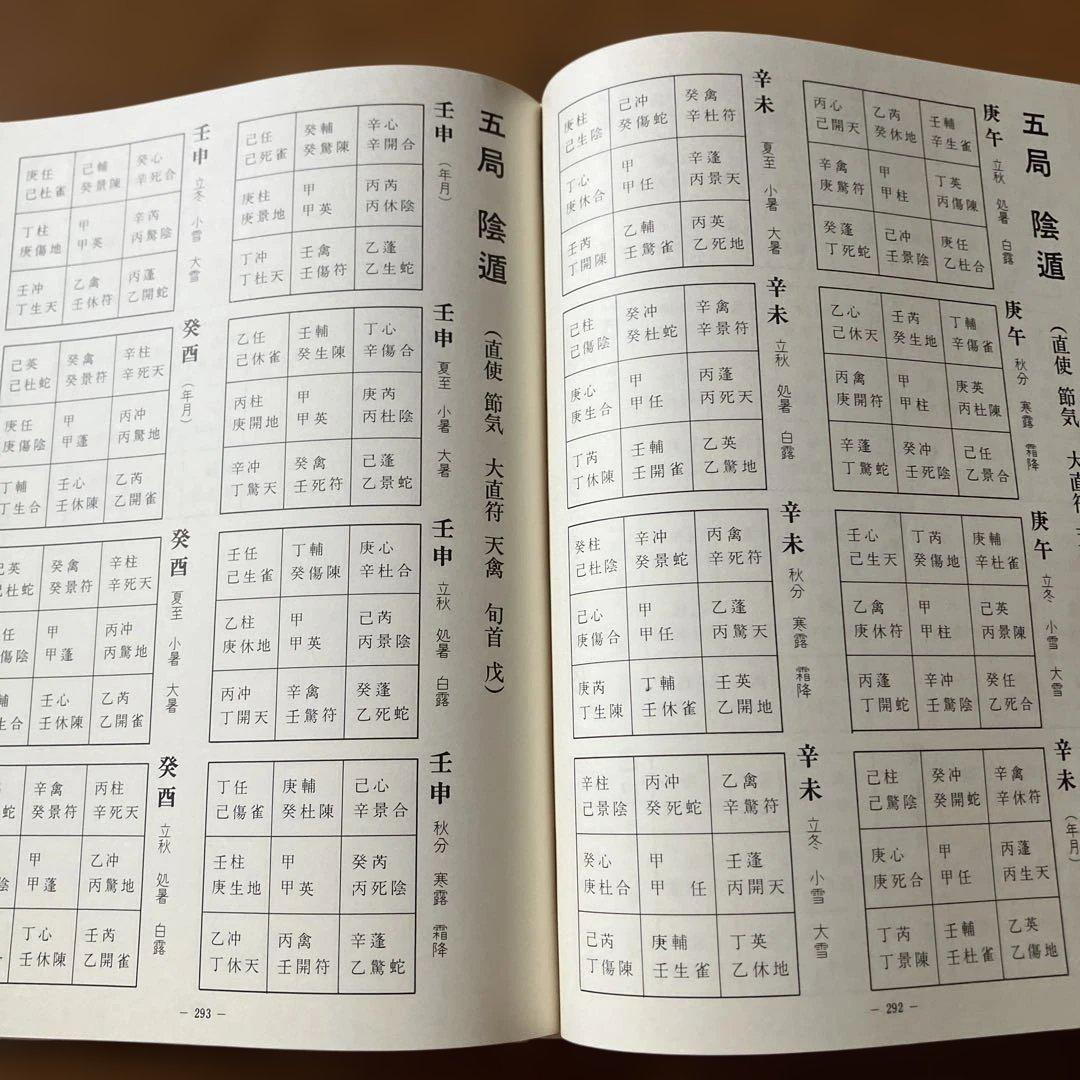 五局 陰遁
(直使 節気 大直符
庚午 立秋 処暑 白露
丙心 乙芮 壬輔
己開天 癸休地 辛生雀
辛禽 甲 丁英
庚驚符 甲柱 丙傷陳
癸蓬 己冲 庚任
丁死蛇 壬景陰 乙杜合
庚午 秋分 寒露 霜降
乙心 壬芮 丁輔
己休天 癸生地 辛傷雀
丙禽 甲 庚英
庚開符 甲柱 丙杜陳
辛蓬 癸冲 己任
丁驚蛇 壬死陰 乙景合
庚午 立冬 小雪 大雪
壬心 丁芮 庚輔
己生天 癸傷地 辛杜雀
乙禽 甲 己英
庚休符 甲柱 丙景陳
丙蓬 辛冲 癸任
丁開蛇 壬驚陰 乙死合
辛未 (年月)
己柱 癸冲 辛禽
己驚陰 癸開蛇 辛休符
庚心 甲 丙蓬
庚死合 甲任 丙生天
丁芮 壬輔 乙英
丁景陳 壬杜雀 乙傷地
辛未 夏至 小暑 大暑
庚柱 己冲 癸禽
己生陰 癸傷蛇 辛杜符
丁心 甲 辛蓬
庚休合 甲任 丙景天
壬芮 乙輔 丙英
丁開陳 壬驚雀 乙死地
辛未 立秋 処暑 白露
己柱 癸冲 辛禽
己傷陰 癸杜蛇 辛景符
庚心 甲 丙蓬
庚生合 甲任 丙死天
丁芮 壬輔 乙英
丁休陳 壬開雀 乙驚地
辛未 秋分 寒露 霜降
癸柱 辛冲 丙禽
己杜陰 癸景蛇 辛死符
己心 甲 乙蓬
庚傷合 甲任 丙驚天
庚芮 丁輔 壬英
丁生陳 壬休雀 乙開地
辛未 立冬 小雪 大雪
辛柱 丙冲 乙禽
己景陰 癸死蛇 辛驚符
癸心 甲 壬蓬
庚杜合 甲任 丙開天
己芮 庚輔 丁英
丁傷陳 壬生雀 乙休地
— 292 —
五局 陰遁
(直使 節気 大直符 天禽 旬首 戊)
壬申 (年月)
己任 癸輔 辛心
己死雀 癸驚陳 辛開合
庚柱 甲 丙芮
庚景地 甲英 丙休陰
丁冲 壬禽 乙蓬
丁杜天 壬傷符 乙生蛇
壬申 夏至 小暑 大暑
乙任 壬輔 丁心
己休雀 癸生陳 辛傷合
丙柱 甲 庚芮
庚開地 甲英 丙杜陰
辛冲 癸禽 己蓬
丁驚天 壬死符 乙景蛇
壬申 立秋 処暑 白露
壬任 丁輔 庚心
己生雀 癸傷陳 辛杜合
乙柱 甲 己芮
庚休地 甲英 丙景陰
丙冲 辛禽 癸蓬
丁開天 壬驚符 乙死蛇
壬申 秋分 寒露 霜降
丁任 庚輔 己心
己傷雀 癸杜陳 辛景合
壬柱 甲 癸芮
庚生地 甲英 丙死陰
乙冲 丙禽 辛蓬
丁休天 壬開符 乙驚蛇
壬申 立冬 小雪 大雪
庚任 己輔 癸心
己杜雀 癸景陳 辛死合
丁柱 甲 辛芮
庚傷地 甲英 丙驚陰
壬冲 乙禽 丙蓬
丁生天 壬休符 乙開蛇
癸酉 (年月)
己英 癸禽 辛柱
己杜蛇 癸景符 辛死天
庚任 甲 丙冲
庚傷陰 甲蓬 丙驚地
丁輔 壬心 乙芮
丁生合 壬休陳 乙開雀
癸酉 夏至 小暑 大暑
己英 癸禽 辛柱
己杜蛇 癸景符 辛死天
任 甲 丙冲
傷陰 甲蓬 丙驚地
輔 壬心 乙芮
生合 壬休陳 乙開雀
癸酉 立秋 処暑 白露
辛禽 丙柱
蛇 癸景符 辛死天
甲 乙冲
陰 甲蓬 丙驚地
丁心 壬芮
壬休陳 乙開雀
— 293 —